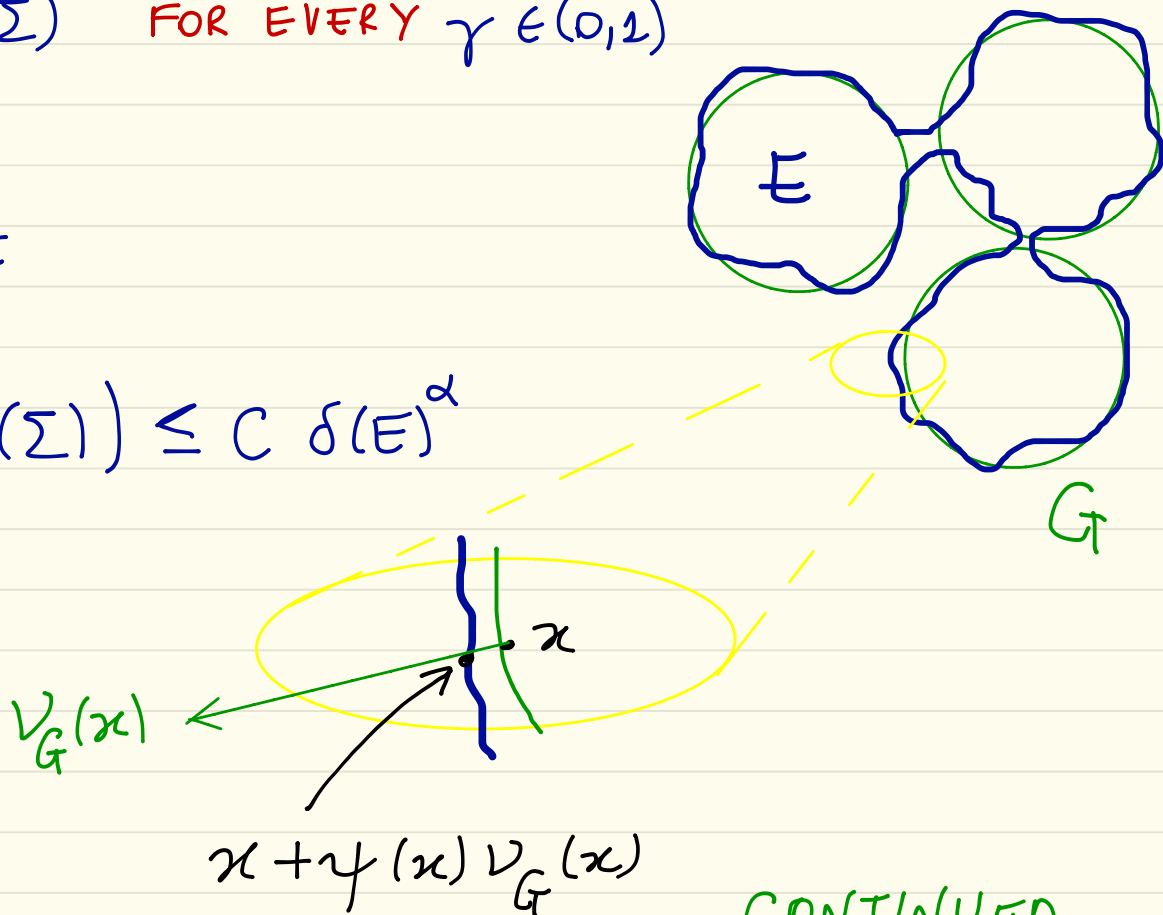 Σ) FOR EVERY γ ∈ (0,1)
E
(Σ)) ≤ C δ(E)^α
G
x
ν_G(x)
x + ψ(x) ν_G(x)
CONTINUED